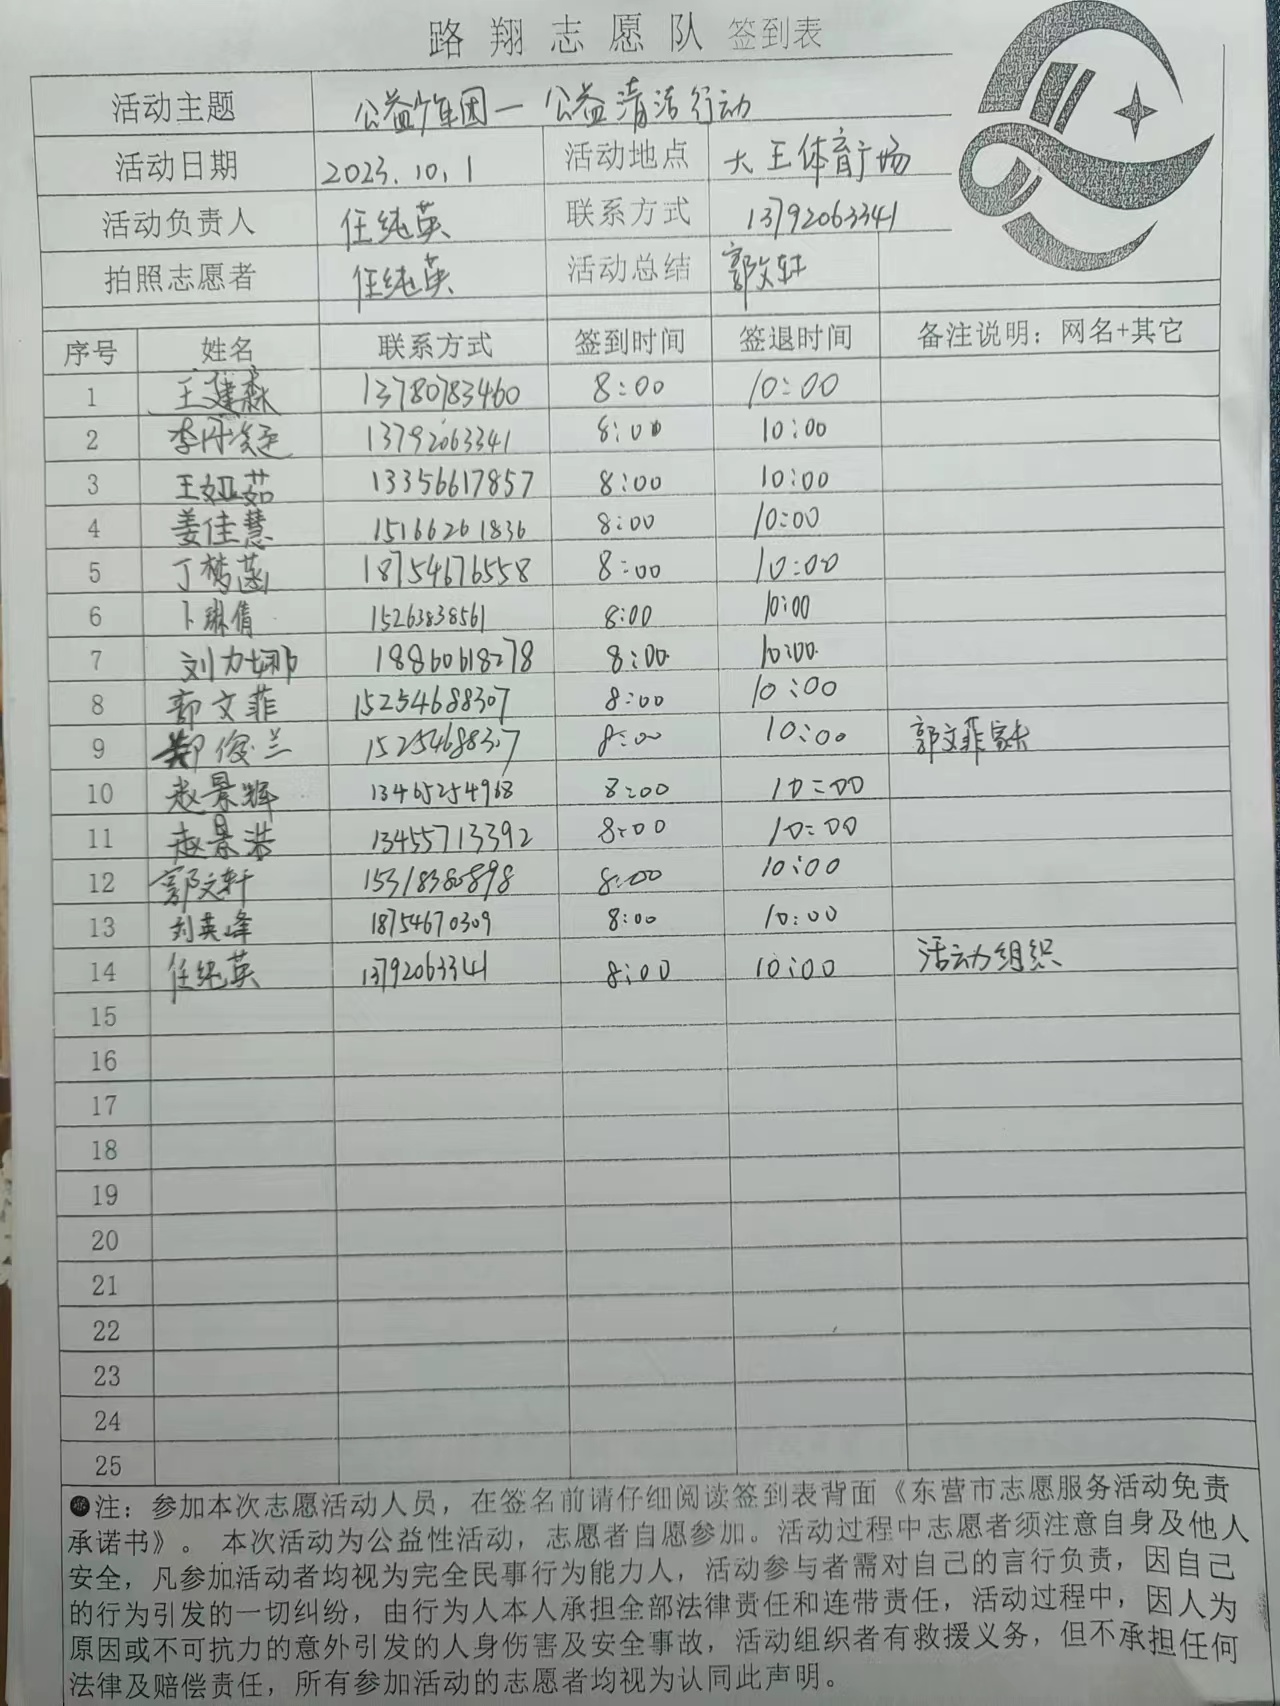 路翔志愿队 签到表
活动主题 公益少年团一公益清洁行动
活动日期 2023.10.1 活动地点 大王体育广场
活动负责人 任纯英 联系方式 13792063341
拍照志愿者 任纯英 活动总结 郭文轩
序号 姓名 联系方式 签到时间 签退时间 备注说明：网名+其它
1 王建森 13780783460 8:00 10:00
2 李丹 13792063341 8:00 10:00
3 王娅茹 13356617857 8:00 10:00
4 姜佳慧 15166261836 8:00 10:00
5 丁梦菡 18754676558 8:00 10:00
6 卜琳倩 15263838561 8:00 10:00
7 刘力娜 18860618278 8:00 10:00
8 郭文菲 15254688307 8:00 10:00
9 郑俊兰 15254688307 8:00 10:00 郭文菲家长
10 赵景辉 13465254968 8:00 10:00
11 赵景浩 13455713392 8:00 10:00
12 郭文轩 15318380898 8:00 10:00
13 刘英峰 18754670309 8:00 10:00
14 任纯英 13792063341 8:00 10:00 活动组织
15
16
17
18
19
20
21
22
23
24
25
注：参加本次志愿活动人员，在签名前请仔细阅读签到表背面《东营市志愿服务活动免责
承诺书》。 本次活动为公益性活动，志愿者自愿参加。活动过程中志愿者须注意自身及他人
安全，凡参加活动者均视为完全民事行为能力人，活动参与者需对自己的言行负责，因自己
的行为引发的一切纠纷，由行为人本人承担全部法律责任和连带责任，活动过程中，因人为
原因或不可抗力的意外引发的人身伤害及安全事故，活动组织者有救援义务，但不承担任何
法律及赔偿责任，所有参加活动的志愿者均视为认同此声明。